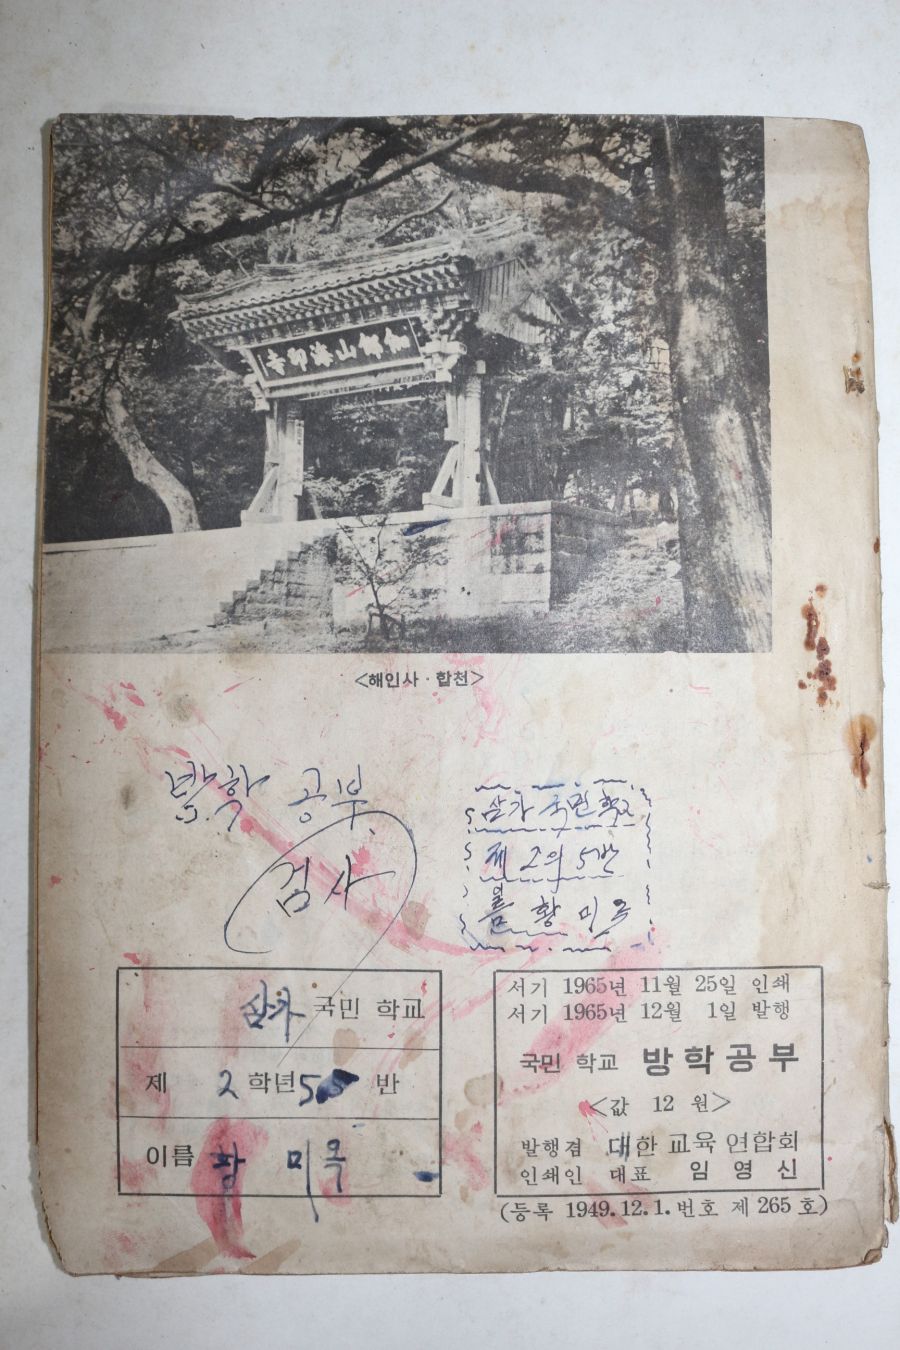 伽倻山海印寺
<해인사·합천>
방학 공부
검사
삼가 국민학교
제 2의 5반
이름 황미
삼가 국민 학교
제 2 학년 5 반
이름 황 미옥
서기 1965년 11월 25일 인쇄
서기 1965년 12월 1일 발행
국민 학교 방학공부
<값 12 원>
발행겸 대한 교육 연합회
인쇄인 대표 임 영 신
(등록 1949. 12. 1. 번호 제 265 호)